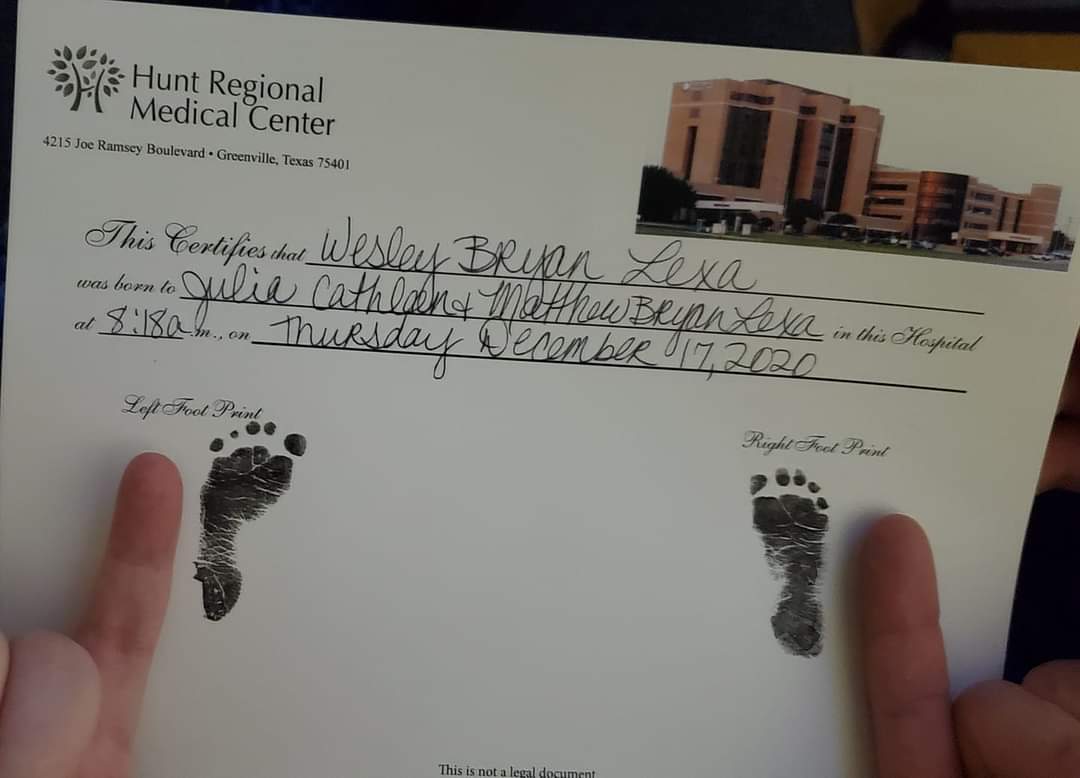 Hunt Regional
Medical Center
4215 Joe Ramsey Boulevard • Greenville, Texas 75401
This Certifies that Wesley Bryan Lexa
was born to Julia Cathleen & Matthew Bryan Lexa in this Hospital
at 8:18a m., on Thursday December 17, 2020
Left Foot Print
Right Foot Print
This is not a legal document